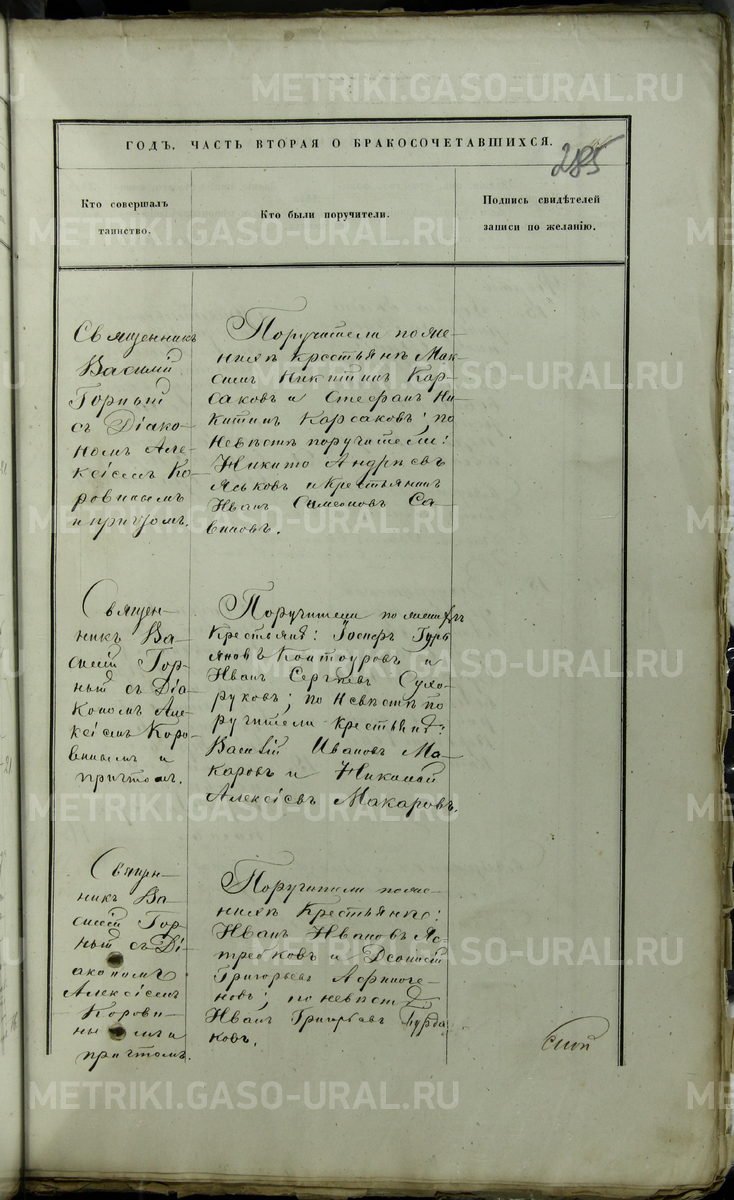 ГОДЪ. ЧАСТЬ ВТОРАЯ О БРАКОСОЧЕТАВШИХСЯ.
285
Кто совершалъ
таинство.
Кто были поручители.
Подпись свидѣтелей
записи по желанію.
Священникъ
Василій
Горный
съ Діако-
номъ Але-
ксіемъ Ко-
ровинымъ
и причтомъ.
Поручители по же-
нихѣ Крестьянѣ Мак-
симъ Никитинъ Кар-
саковъ и Стефанъ Ни-
китинъ Карсаковъ; по
невѣстѣ поручители:
Никита Андреевъ
Яськовъ и крестьянинъ
Иванъ Симеоновъ Са-
виновъ.
Священ-
никъ Ва-
силій Гор-
ный съ Діа-
кономъ Але-
ксіемъ Коро-
винымъ и
причтомъ.
Поручители по женихѣ
Крестьяня: Іосифъ Гурь
яновъ и
Иванъ Сергѣевъ Сухо-
руковъ; по невѣстѣ по
ручители крестьяня:
Василій Ивановъ Ма-
каровъ и Николай
Алексіевъ Макаровъ.
Священ-
никъ Ва-
силій Гор-
ный съ Ді-
акономъ
Алексіемъ
Корови-
нымъ и
причтомъ.
Поручители по же-
нихѣ Крестьяне:
Иванъ Ивановъ Яс-
требковъ и Деонисій
Григорьевъ Афиноге-
новъ; по невѣстѣ
Иванъ Григорьевъ Бурда
ковъ.
METRIKI.GASO-URAL.RU